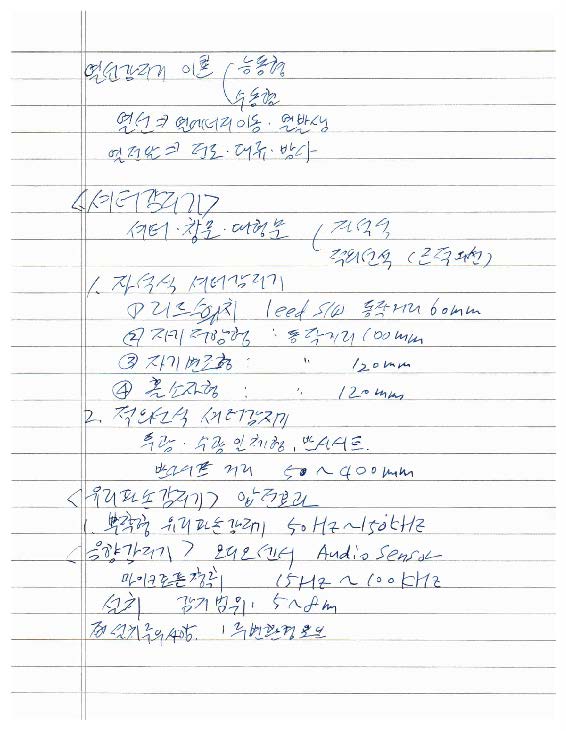 열선감지기 이론 ( 능동형
수동형
열선 → 열에너지 이동 · 열발생
열전달 → 전도 · 대류 · 방사
<셔터감지기>
셔터 · 창문 · 대형문 ( 자석식
적외선식 (근적외선)
1. 자석식 셔터감지기
① 리드스위치 leed S/W 동작거리 60mm
② 자기저항형 : 동작거리 100mm
③ 자기변조형 : " 120mm
④ 홀소자형 : " 120mm
2. 적외선식 셔터감지기
투광 · 수광 일체형, 반사시트.
반사시트 거리 50~400mm
<유리파손감지기> 압전효과
1. 부착형 유리파손감지기 50Hz~150kHz
<음향감지기> 오디오센서 Audio Sensor
마이크로폰 장착 15Hz ~ 100kHz
설치 감지범위: 5~8m
설치주의사항. 1 주변환경